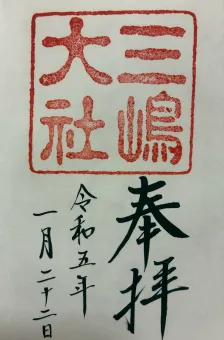 三嶋
大社
奉拝
令和五年
一月二十二日